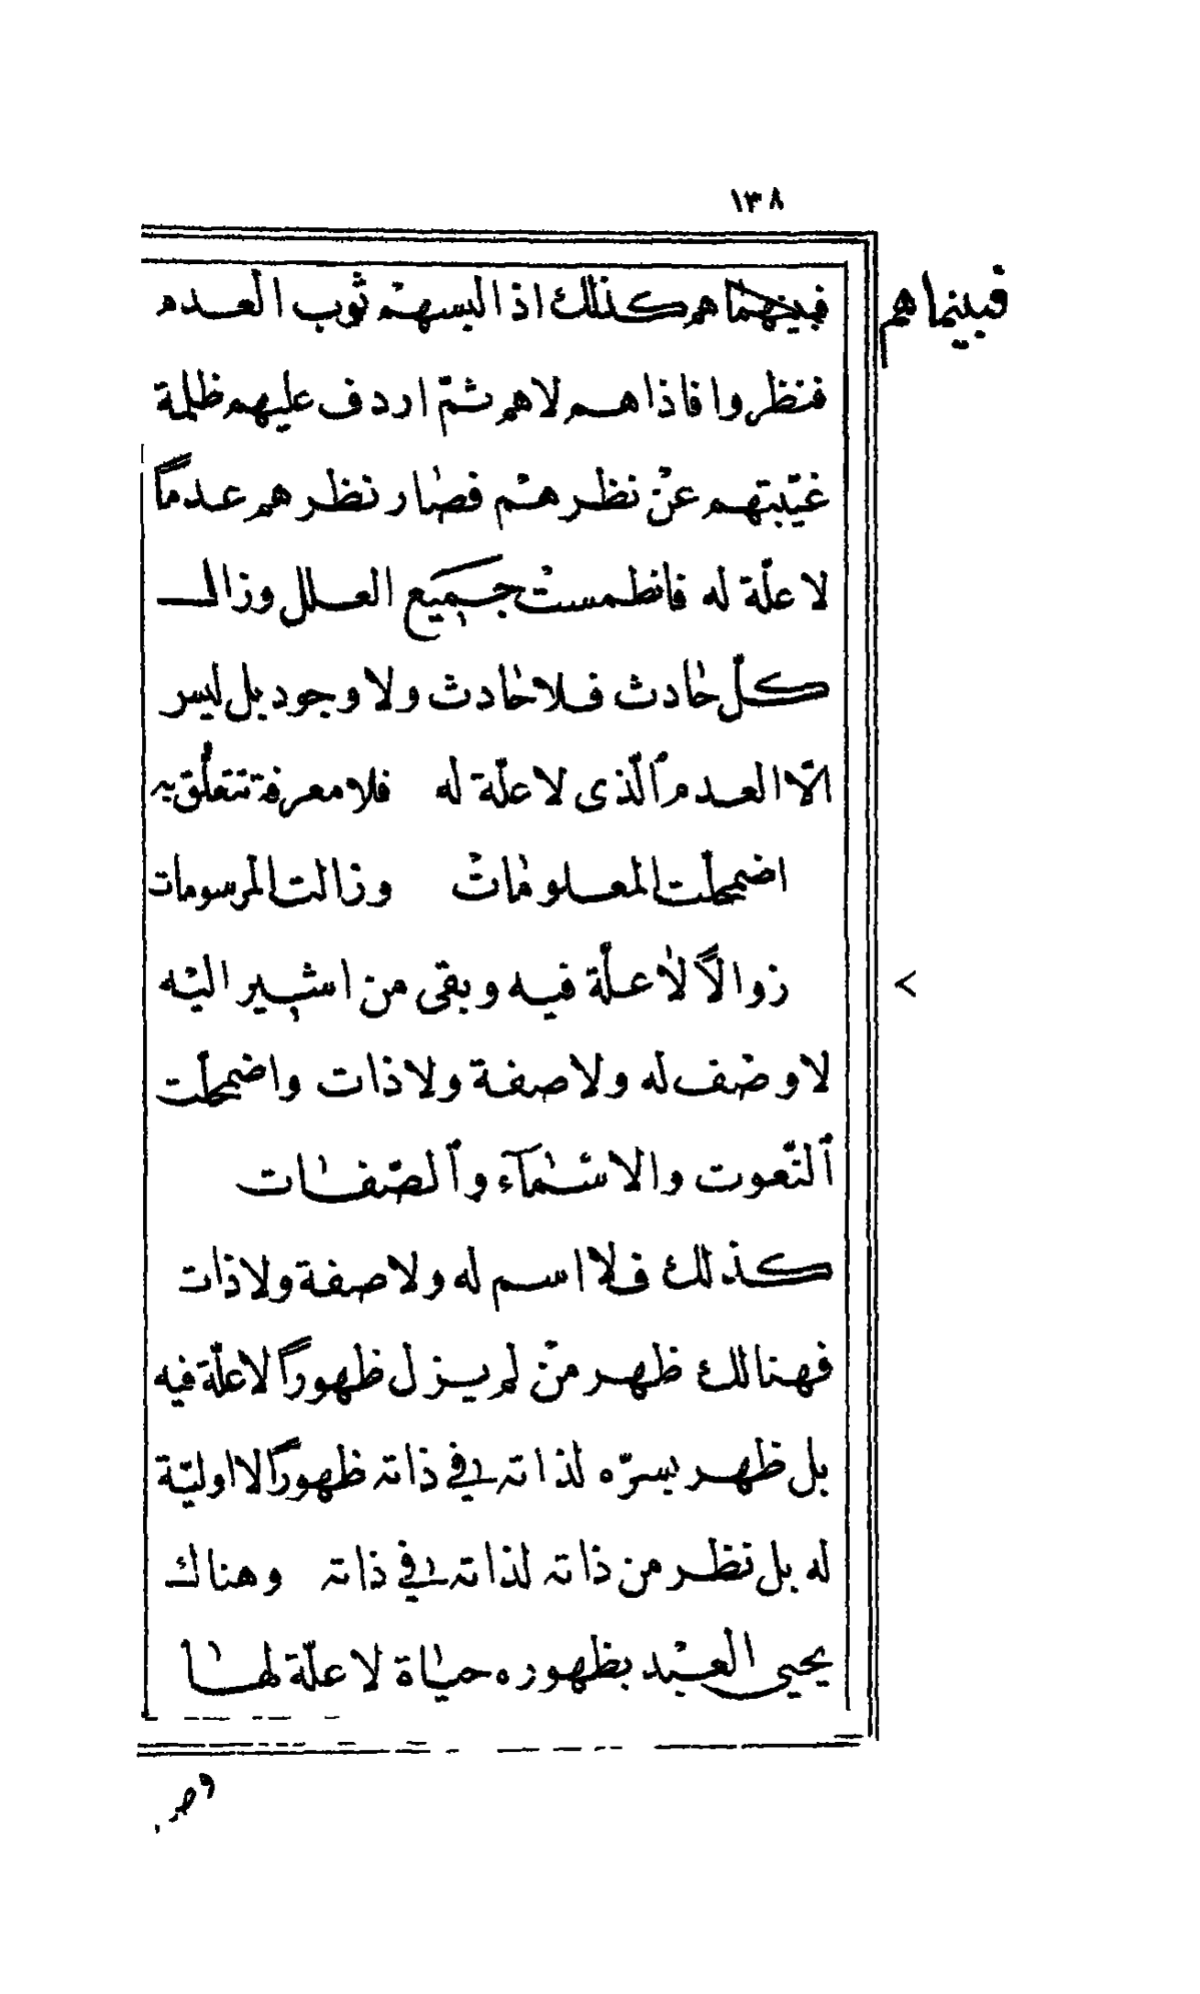 ١٣٨
فبينهما هم كذلك اذ البسهم ثوب العدم
فبينما هم
فنظروا فاذا هم لا هم ثمّ اردف عليهم ظلمة
غيّبتهم عنْ نظرهم فصار نظرهم عدماً
لا علّة له فانطمستْ جميع العلل وزال
كلّ حادث فلا حادث ولا وجود بل ليس
الّا العدم ٱلّذى لا علّة له فلا معرفة تتعلّق به
اضمحلّت المعلوماتْ وزالت المرسومات
زوالاً لا علّة فيه وبقى من اشير اليْه
لا وصْف له ولا صفة ولا ذات واضمحلّت
ٱلنّعوت والاسْمآء وٱلصّفات
كذلك فلا اسم له ولا صفة ولا ذات
فهنالك ظهر منْ لم يزل ظهوراً لا علّة فيه
بل ظهر بسرّه لذاته فى ذاته ظهوراً لا اوليّة
له بل نظر من ذاته لذاته فى ذاته وهناك
يحيى العبْد بظهوره حياة لا علّة لها